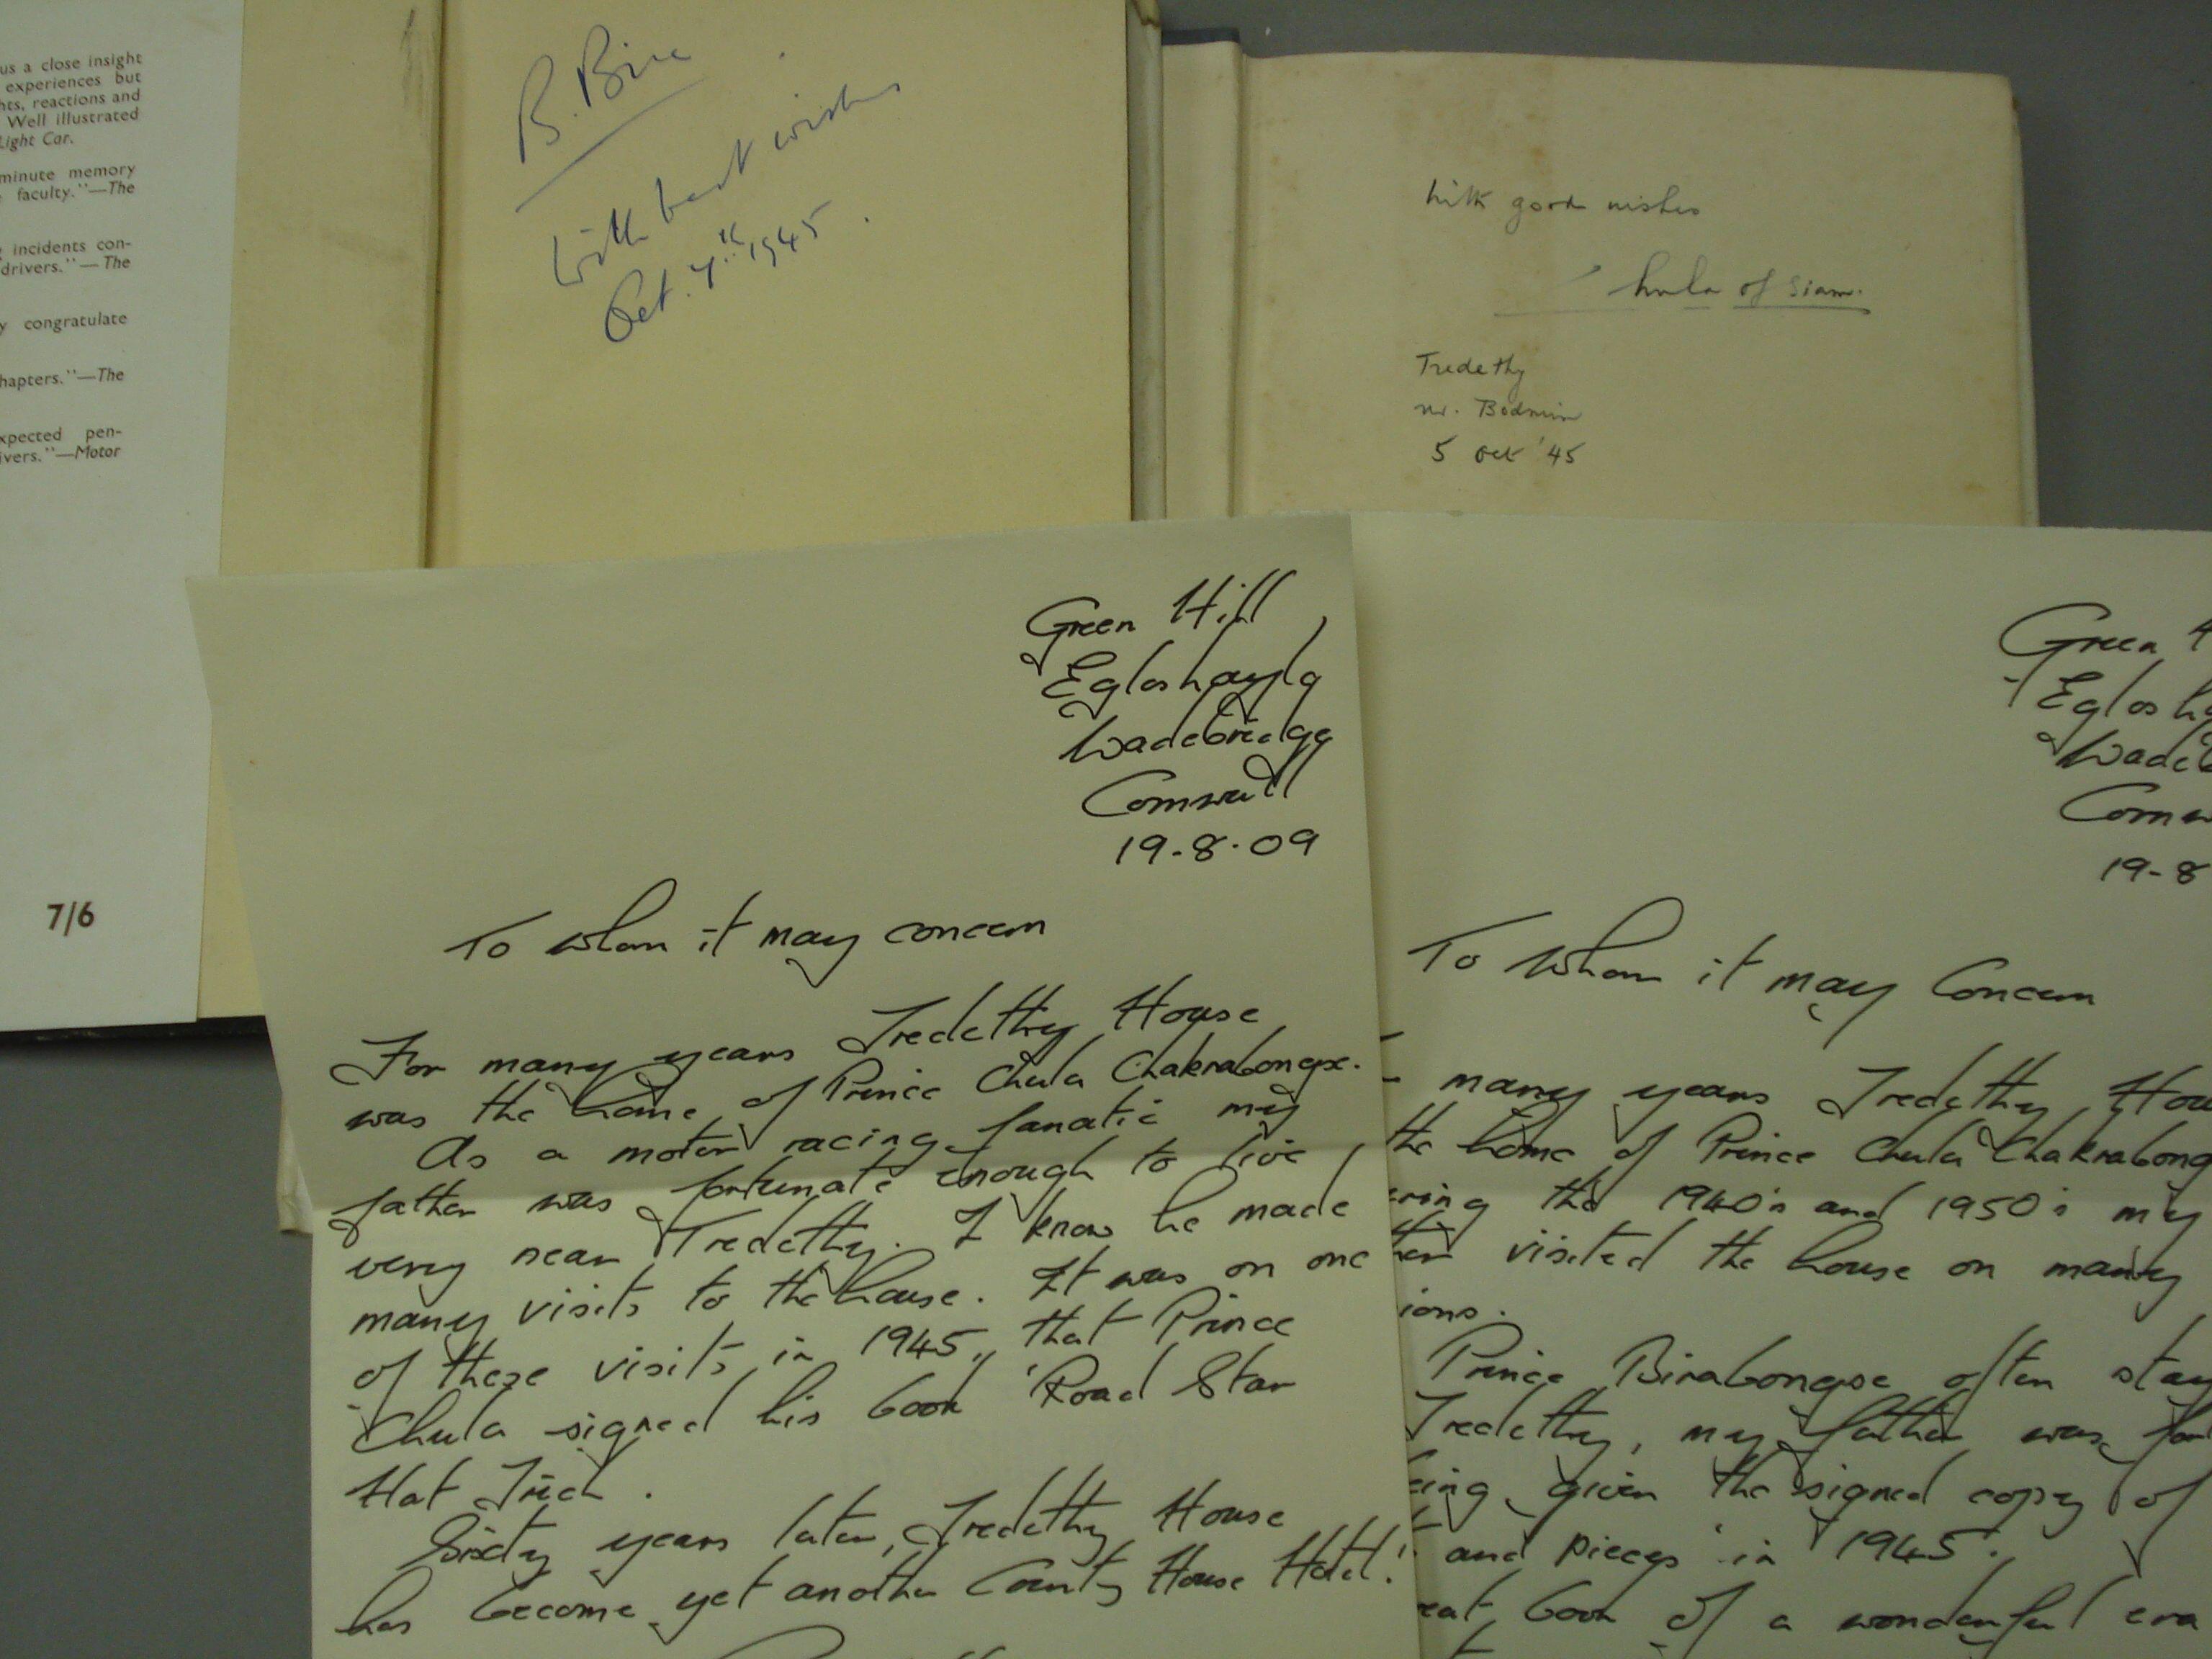 us a close insight
experiences but
hts, reactions and
Well illustrated
Light Car.
minute memory
faculty."—The
incidents con-
drivers."—The
y congratulate
hapters."—The
xpected pen-
ivers."—Motor
7/6
B. Bira
With best wishes
Oct. 7th 1945.
With good wishes
Chula of Siam.
Tredethy
nr. Bodmin
5 Oct '45
Green Hill,
Egloshayle
Wadebridge
Cornwall
19-8-09
To whom it may concern
For many years Tredethy House
was the home of Prince Chula Chakrabongse.
As a motor racing fanatic my
father was fortunate enough to live
very near Tredethy. I know he made
many visits to the house. It was on one
of these visits, in 1945, that Prince
Chula signed his book 'Road Star
Hat Trick.
Sixty years later, Tredethy House
has become yet another County House Hotel!
Green H
Eglosh
Wadeb
Cornw
19-8
To Whom it may Concern
many years Tredethy Hou
the home of Prince Chula Chakrabong
uring the 1940's and 1950's my
her visited the house on many
ions.
Prince Birabongse often stay
Tredethy, my father was for
eing given the signed copy of
and pieces' in 1945.
reat book of a wonderful era